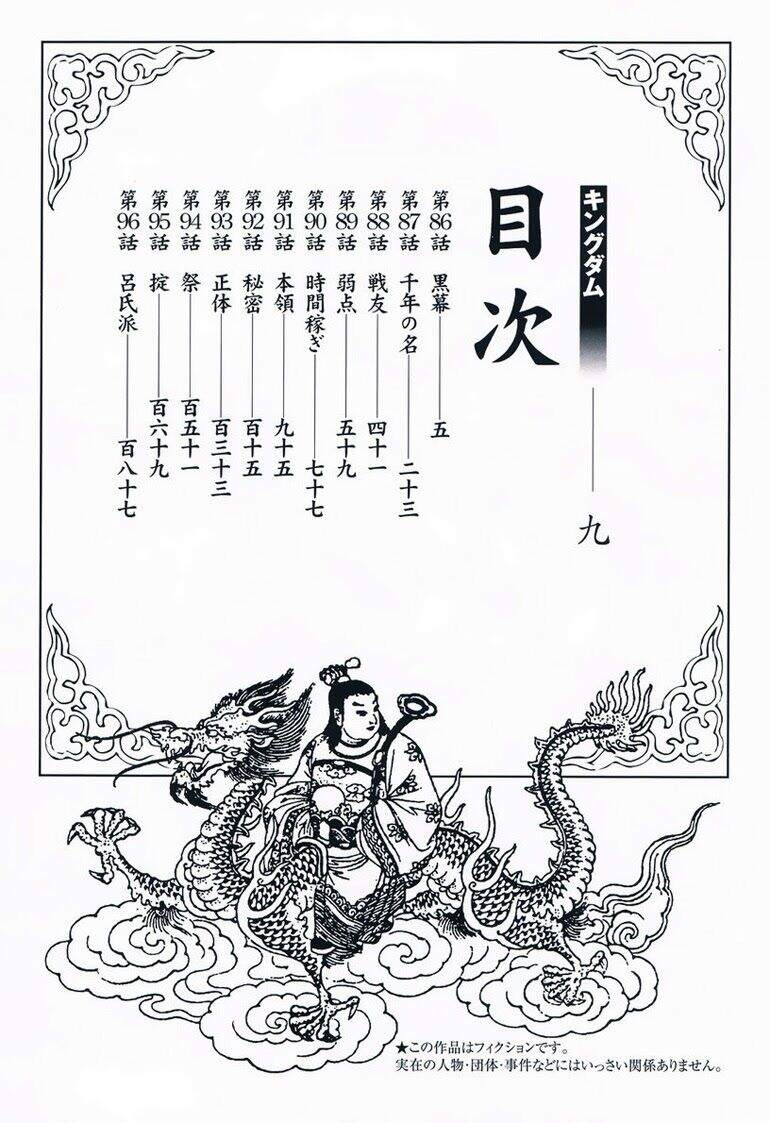 キングダム 九
目次
第86話 黒幕 五
第87話 千年の名 二十三
第88話 戦友 四十一
第89話 弱点 五十九
第90話 時間稼ぎ 七十七
第91話 本領 九十五
第92話 秘密 百十五
第93話 正体 百三十三
第94話 祭 百五十一
第95話 掟 百六十九
第96話 呂氏派 百八十七
★この作品はフィクションです。
実在の人物・団体・事件などにはいっさい関係ありません。